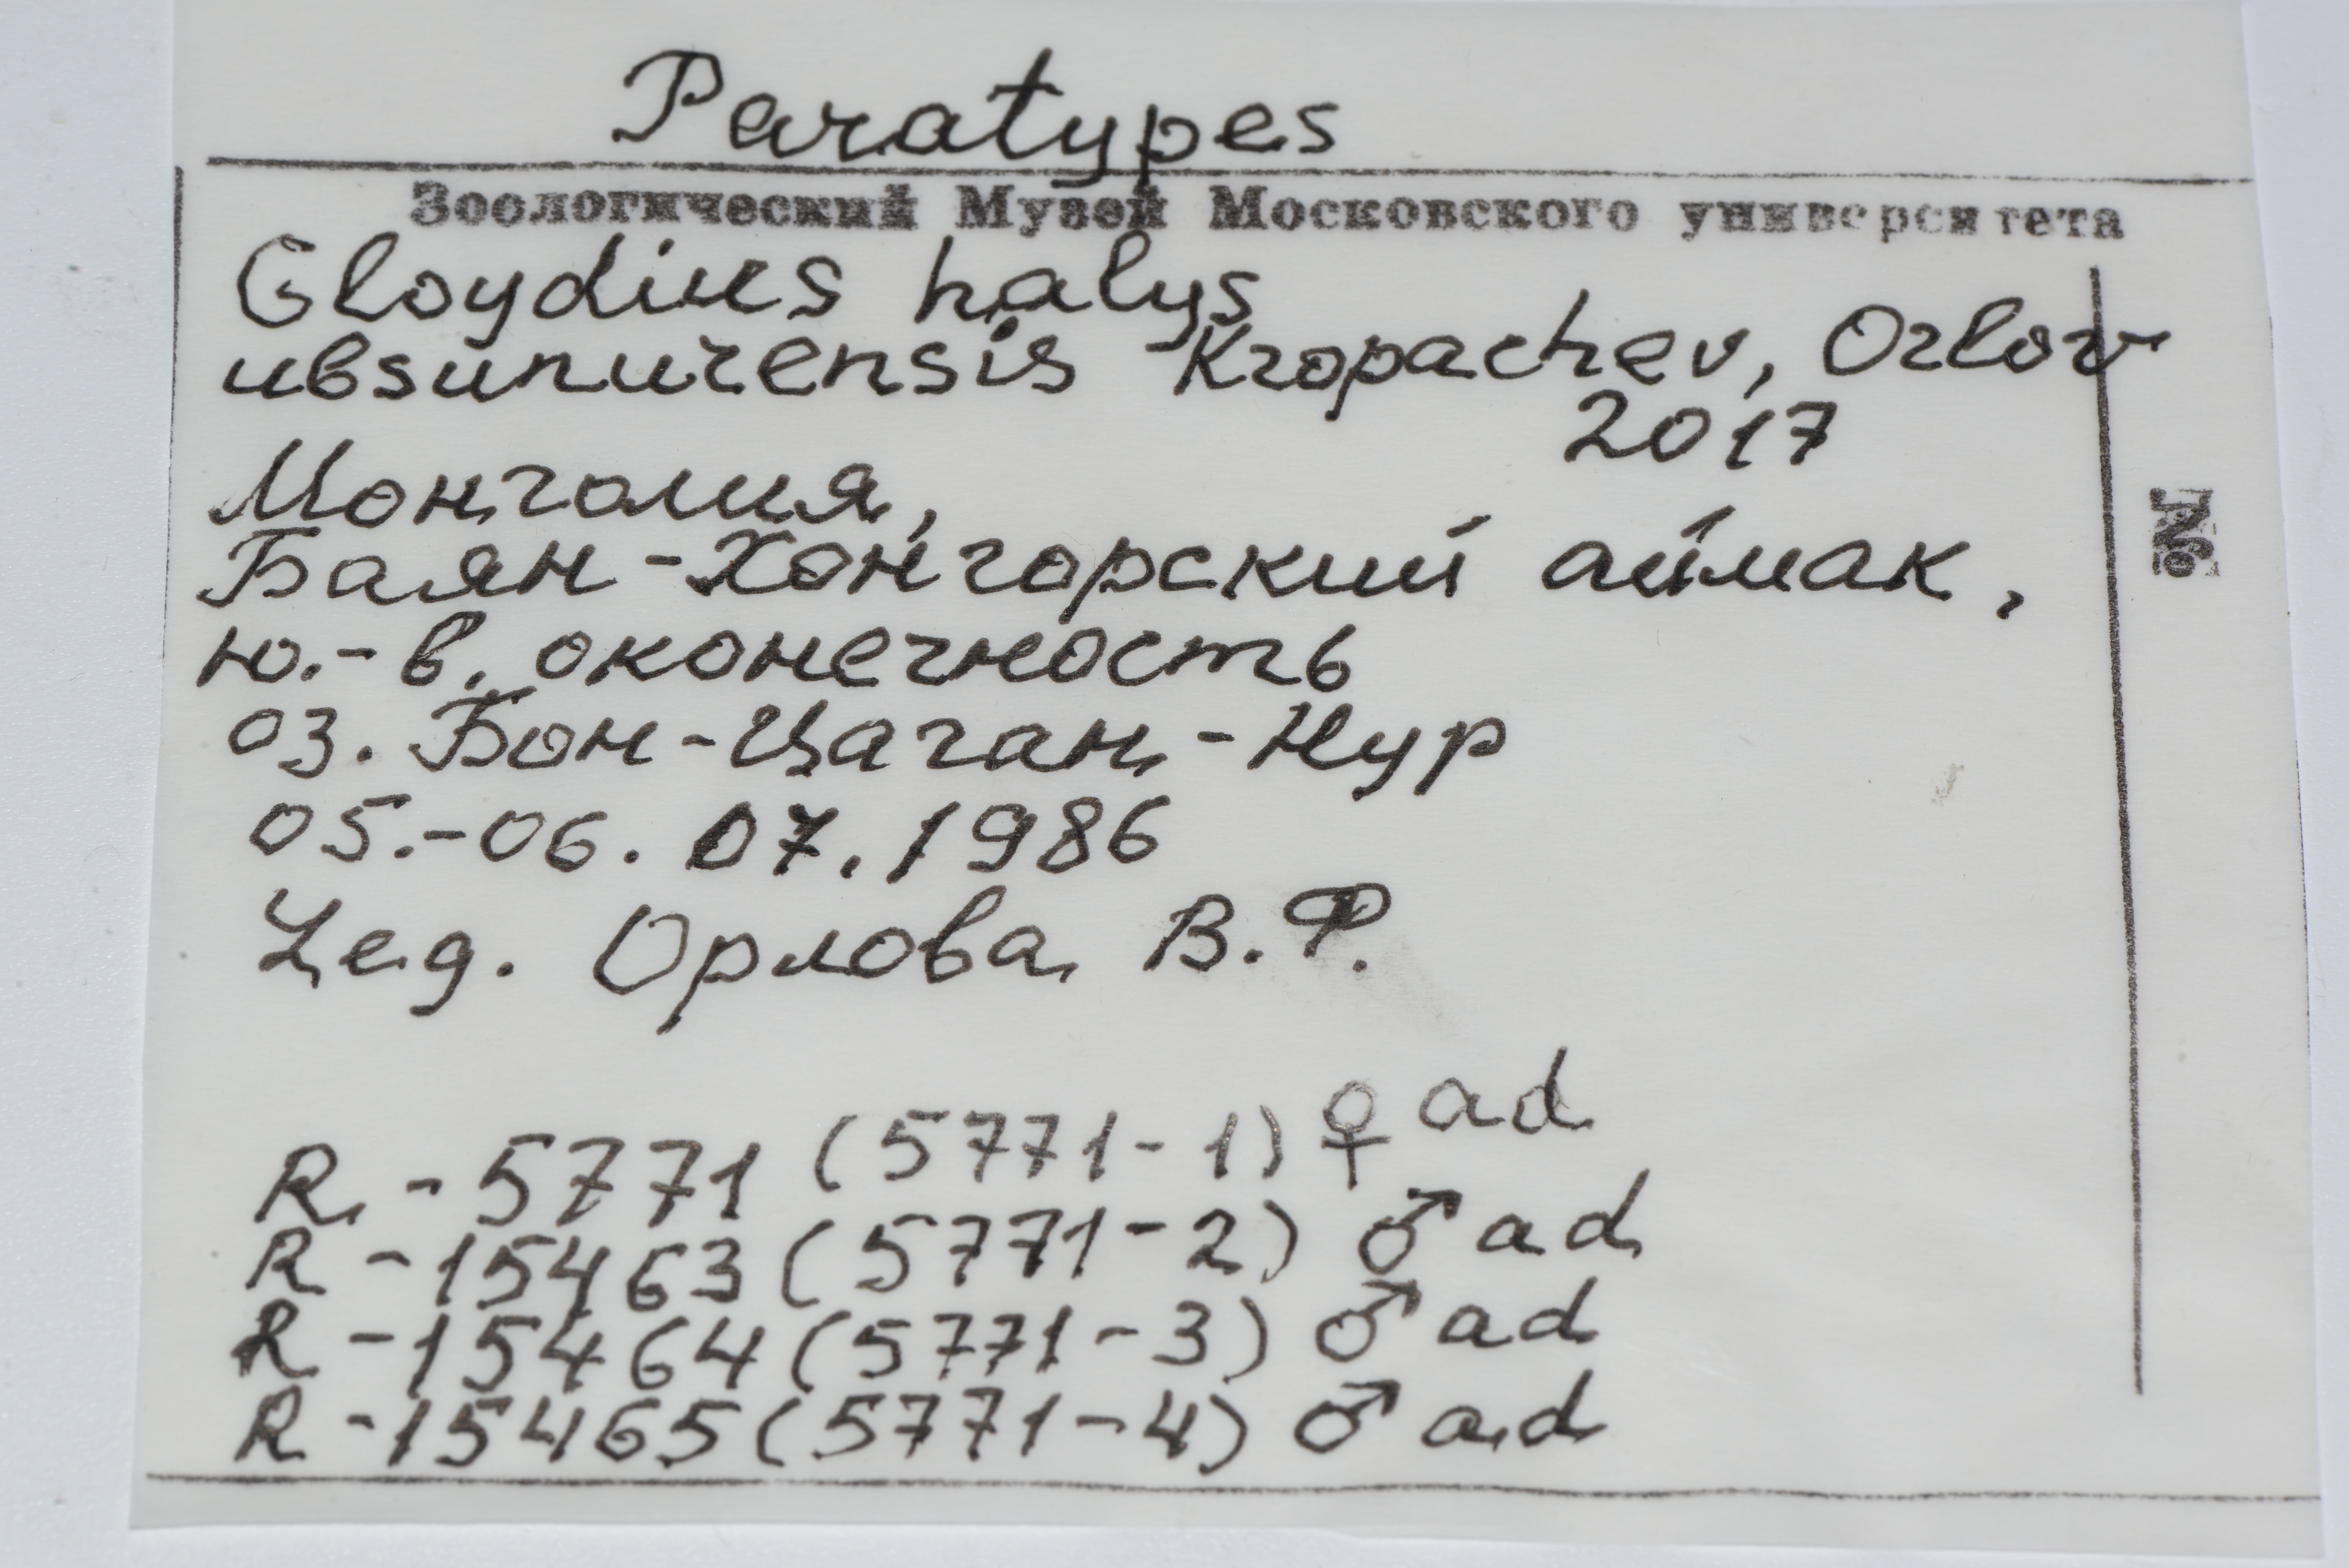 Paratypes
Зоологический Музей Московского университета
Gloydius halys
ubsunurensis Kropachev, Orlov
2017
Монголия,
Баян-Хонгорский аймак,
ю.-в. оконечность
оз. Бон-Цаган-Нур
05.-06.07.1986
Лед. Орлова В.Ф.
R-5771 (5771-1) ♀ ad
R-15463 (5771-2) ♂ ad
R-15464 (5771-3) ♂ ad
R-15465 (5771-4) ♂ ad
№